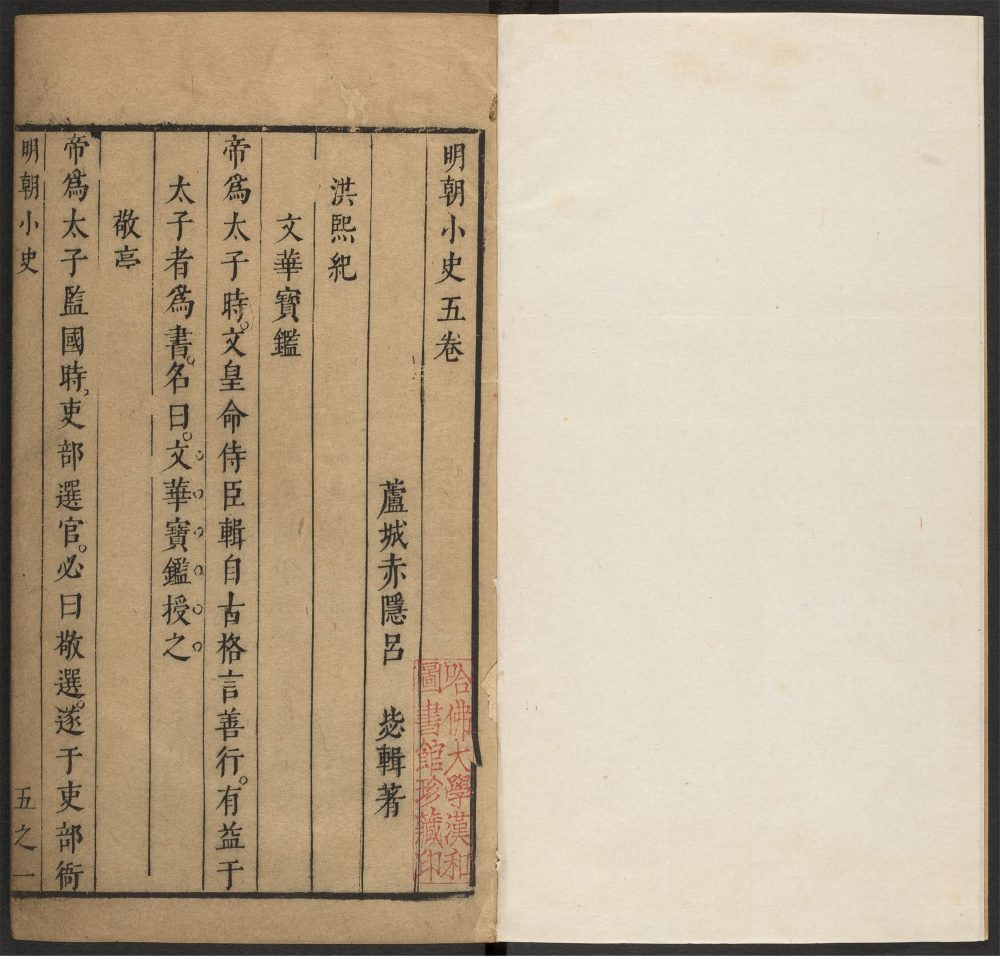 明朝小史五卷
蘆城赤隱呂　毖輯著
洪熙紀
文華寶鑑
帝爲太子時。文皇命侍臣輯自古格言善行。有益于
太子者爲書。名曰。文華寶鑑授之
敬亭
帝爲太子監國時。吏部選官。必曰敬選。遂于吏部衙
明朝小史
五之一
哈佛大學漢和
圖書館珍藏印